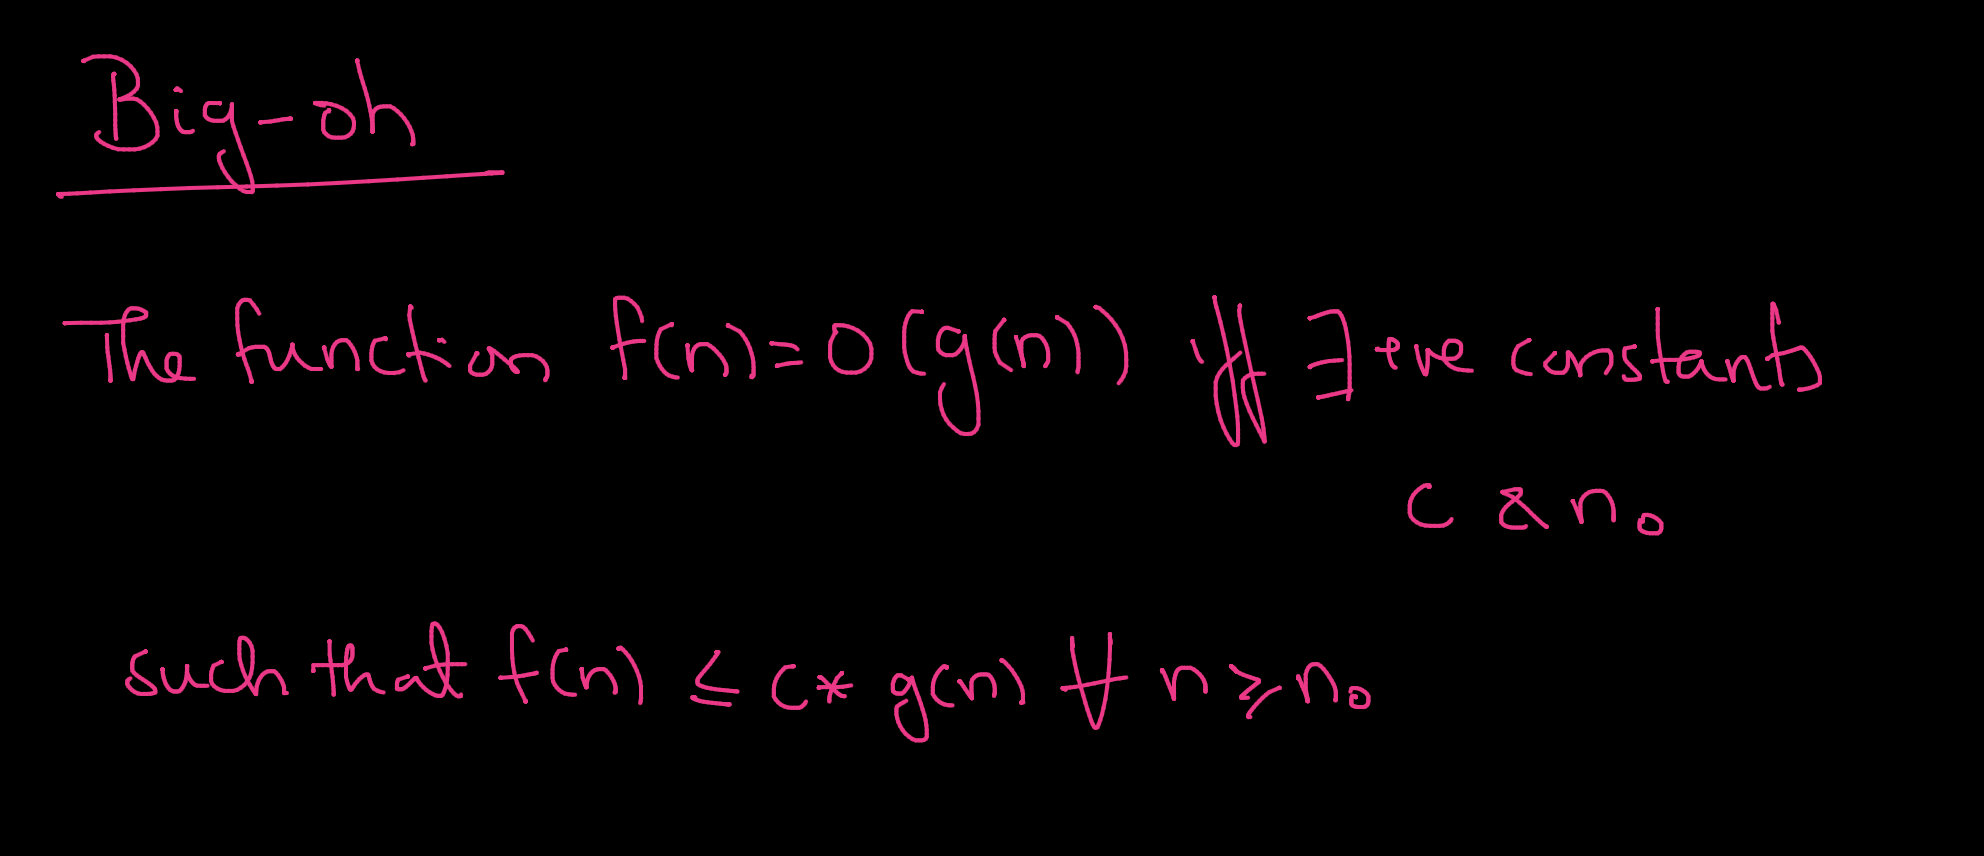 Big-oh
The function f(n)=O(g(n)) iff ∃ +ve constants
c & n₀
such that f(n) ≤ c* g(n) ∀ n ≥ n₀